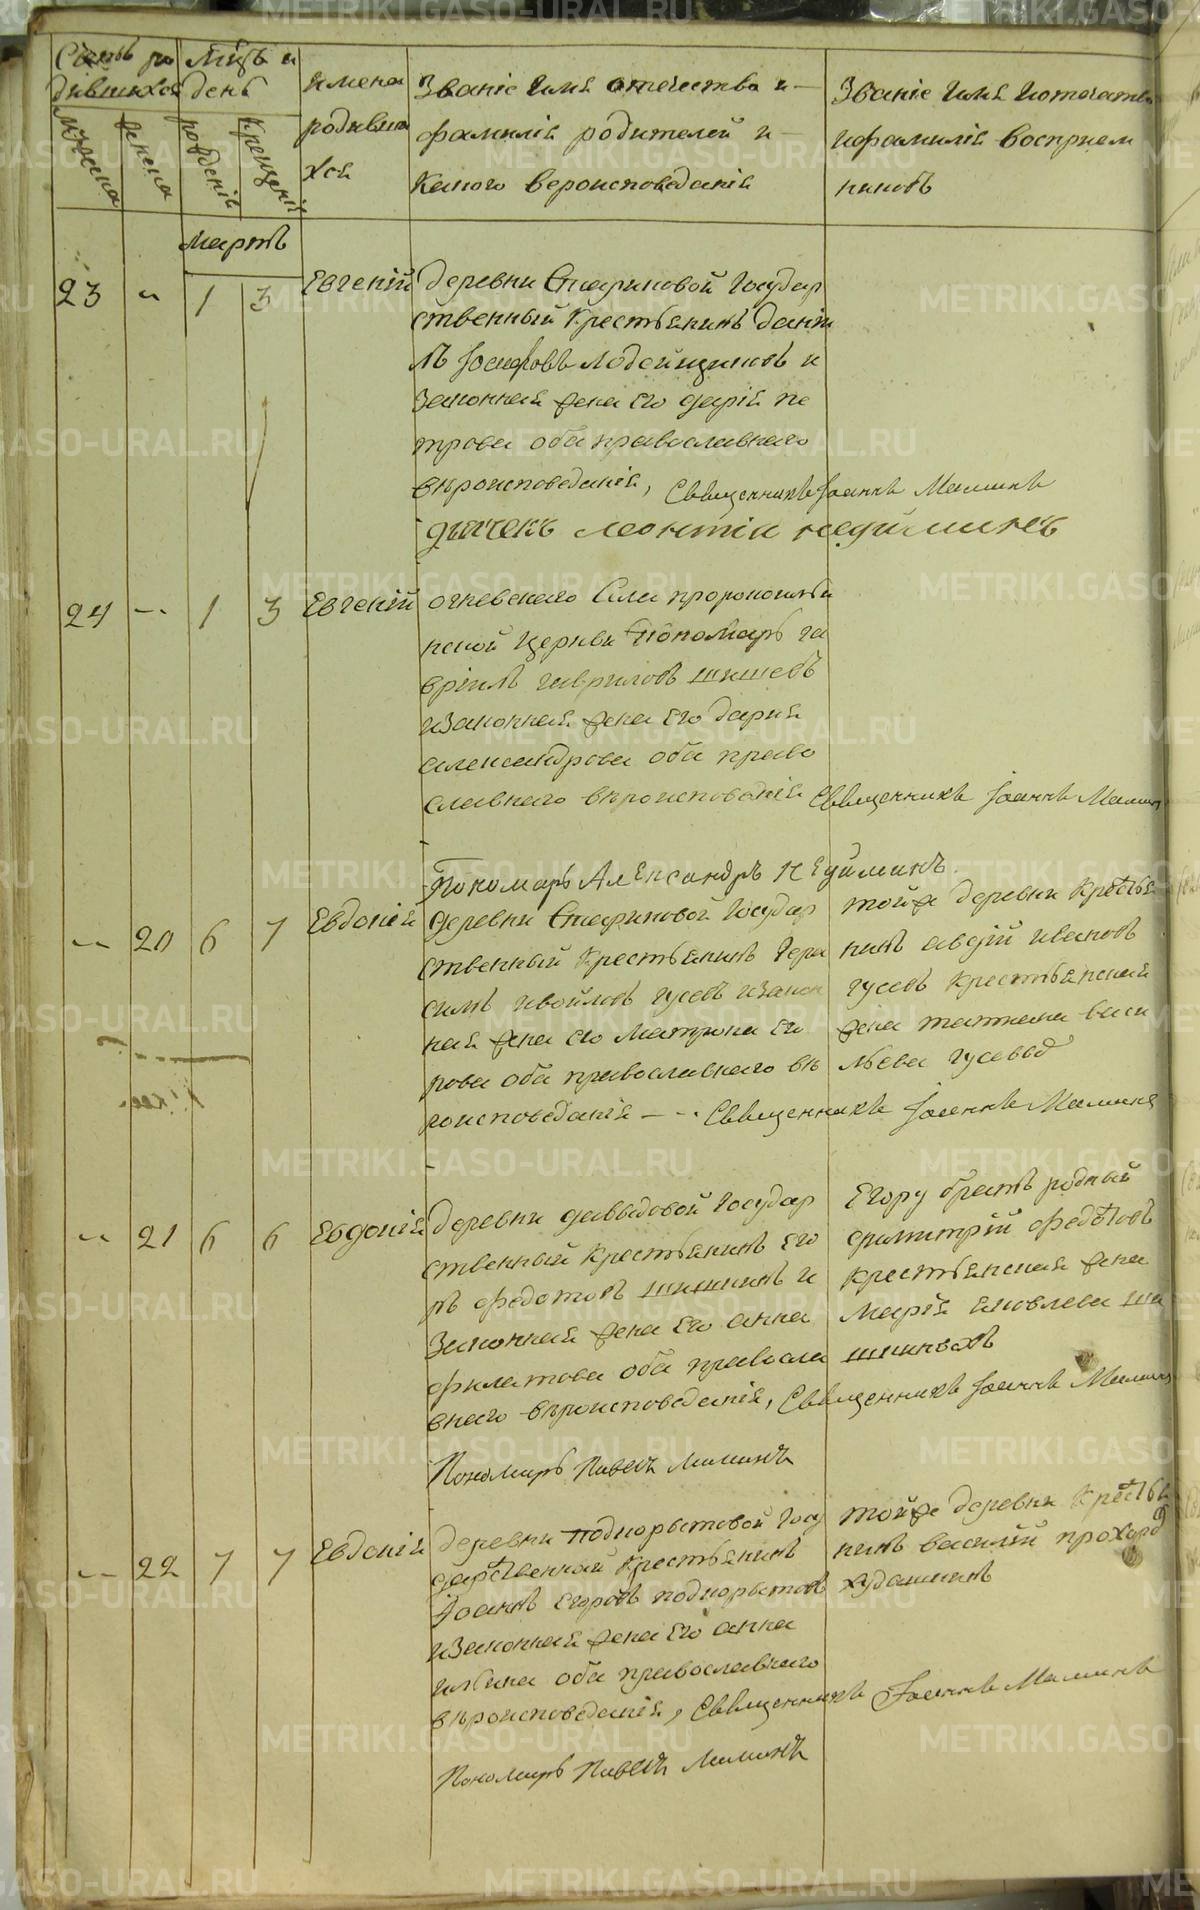 Счетъ ро
дившихся
мужеска
женска
Мѣсяцъ и
день
рожденія
крещенія
имена
родивши
хся
Званіе имя отечество и
фамилія родителей и
какого вероисповеданія
Званіе имя и отечество
и фамилія восприем
никовъ
Мартъ
23 " 1 3 Евгеній
деревни Стариковой Государ
ственный Крестьянинъ Даніи
лъ Іосифовъ Лодейщиковъ и
Законная жена Его дарія пе
трова оба православнаго
вѣроисповеданія, Священникъ Іоаннъ Маминъ
дьячекъ леонтіи неуйминъ
24 " 1 3 Евгеній
огневскаго Села пророкоильи
нской Церкви Пономарь га
вріилъ гавриловъ шишевъ
и Законная жена Его дарія
александрова оба право
славнаго вѣроисповеданія Священникъ Іоаннъ Маминъ
Пономарь Александръ Неуйминъ.
" 20 6 7 Евдокія
деревни Стариковой Государ
ственный Крестьянинъ Гера
симъ Гусевъ и закон
ная жена Его Матрона Его
рова оба православнаго вѣ
роисповеданія Священникъ Іоаннъ Маминъ
тойже деревни Крестья
нинъ авдій ивановъ
гусевъ Крестьянская
жена татиана васи
льева гусевыхъ
" 21 6 6 Евдокія
деревни давыдовой Государ
ственный Крестьянинъ Его
ръ федотовъ шишкинъ и
Законная жена Его анна
филатова оба правосла
внаго вѣроисповеданія, Священникъ Іоаннъ Маминъ
Егору братъ родный
димитрій федотовъ
Крестьянская жена
Марія яковлева
Пономарь Павелъ Маминъ
" 22 7 7 Евдокія
деревни подкорытовой Госу
дарственный Крестьянинъ
Іоаннъ Егоровъ подкорытовъ
и Законная жена Его анна
ильина оба православнаго
вѣроисповеданія, Священникъ Іоаннъ Маминъ
тойже деревни Крестья
нинъ василій прохоровъ
худяшкинъ
Пономарь Павелъ Маминъ
METRIKI.GASO-URAL.RU